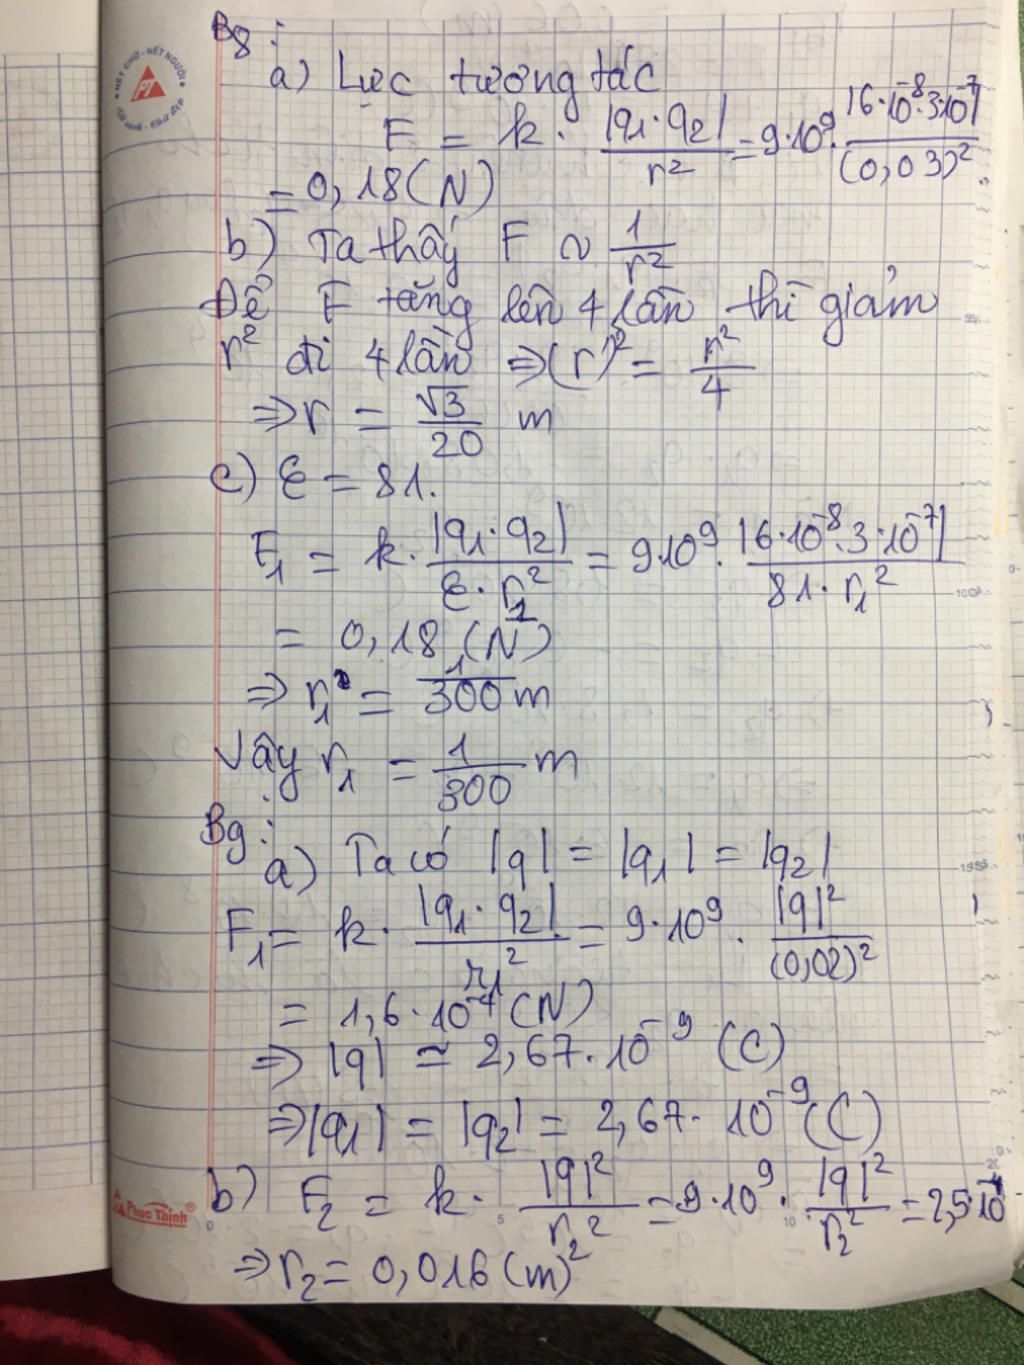 B8:
a) Lực tương tác
F = k. |q1.q2| / r² = 9.10⁹. |6.10⁻⁸.3.10⁻⁷| / (0,03)²
= 0,18 (N)
b) Ta thấy F ~ 1/r²
Để F tăng lên 4 lần thì giảm
r² đi 4 lần ⇒ (r')² = r²/4
⇒ r = √3/20 m
c) ε = 81.
F₁ = k. |q1.q2| / ε.r₁² = 9.10⁹. |6.10⁻⁸.3.10⁻⁷| / 81.r₁²
= 0,18 (N)
⇒ r₁ = 1/300 m
Vậy r₁ = 1/300 m
B9:
a) Ta có |q| = |q₁| = |q₂|
F₁ = k. |q₁.q₂| / r₁² = 9.10⁹. |q|² / (0,02)²
= 1,6.10⁻⁴ (N)
⇒ |q| ≃ 2,67.10⁻⁹ (C)
⇒ |q₁| = |q₂| = 2,67.10⁻⁹ (C)
b) F₂ = k. |q|² / r₂² = 9.10⁹. |q|² / r₂² = 2,5.10⁻⁴
⇒ r₂ = 0,016 (m)
NÉT CHỮ - NẾT NGƯỜI
PT
Phúc Thịnh
0 5 10